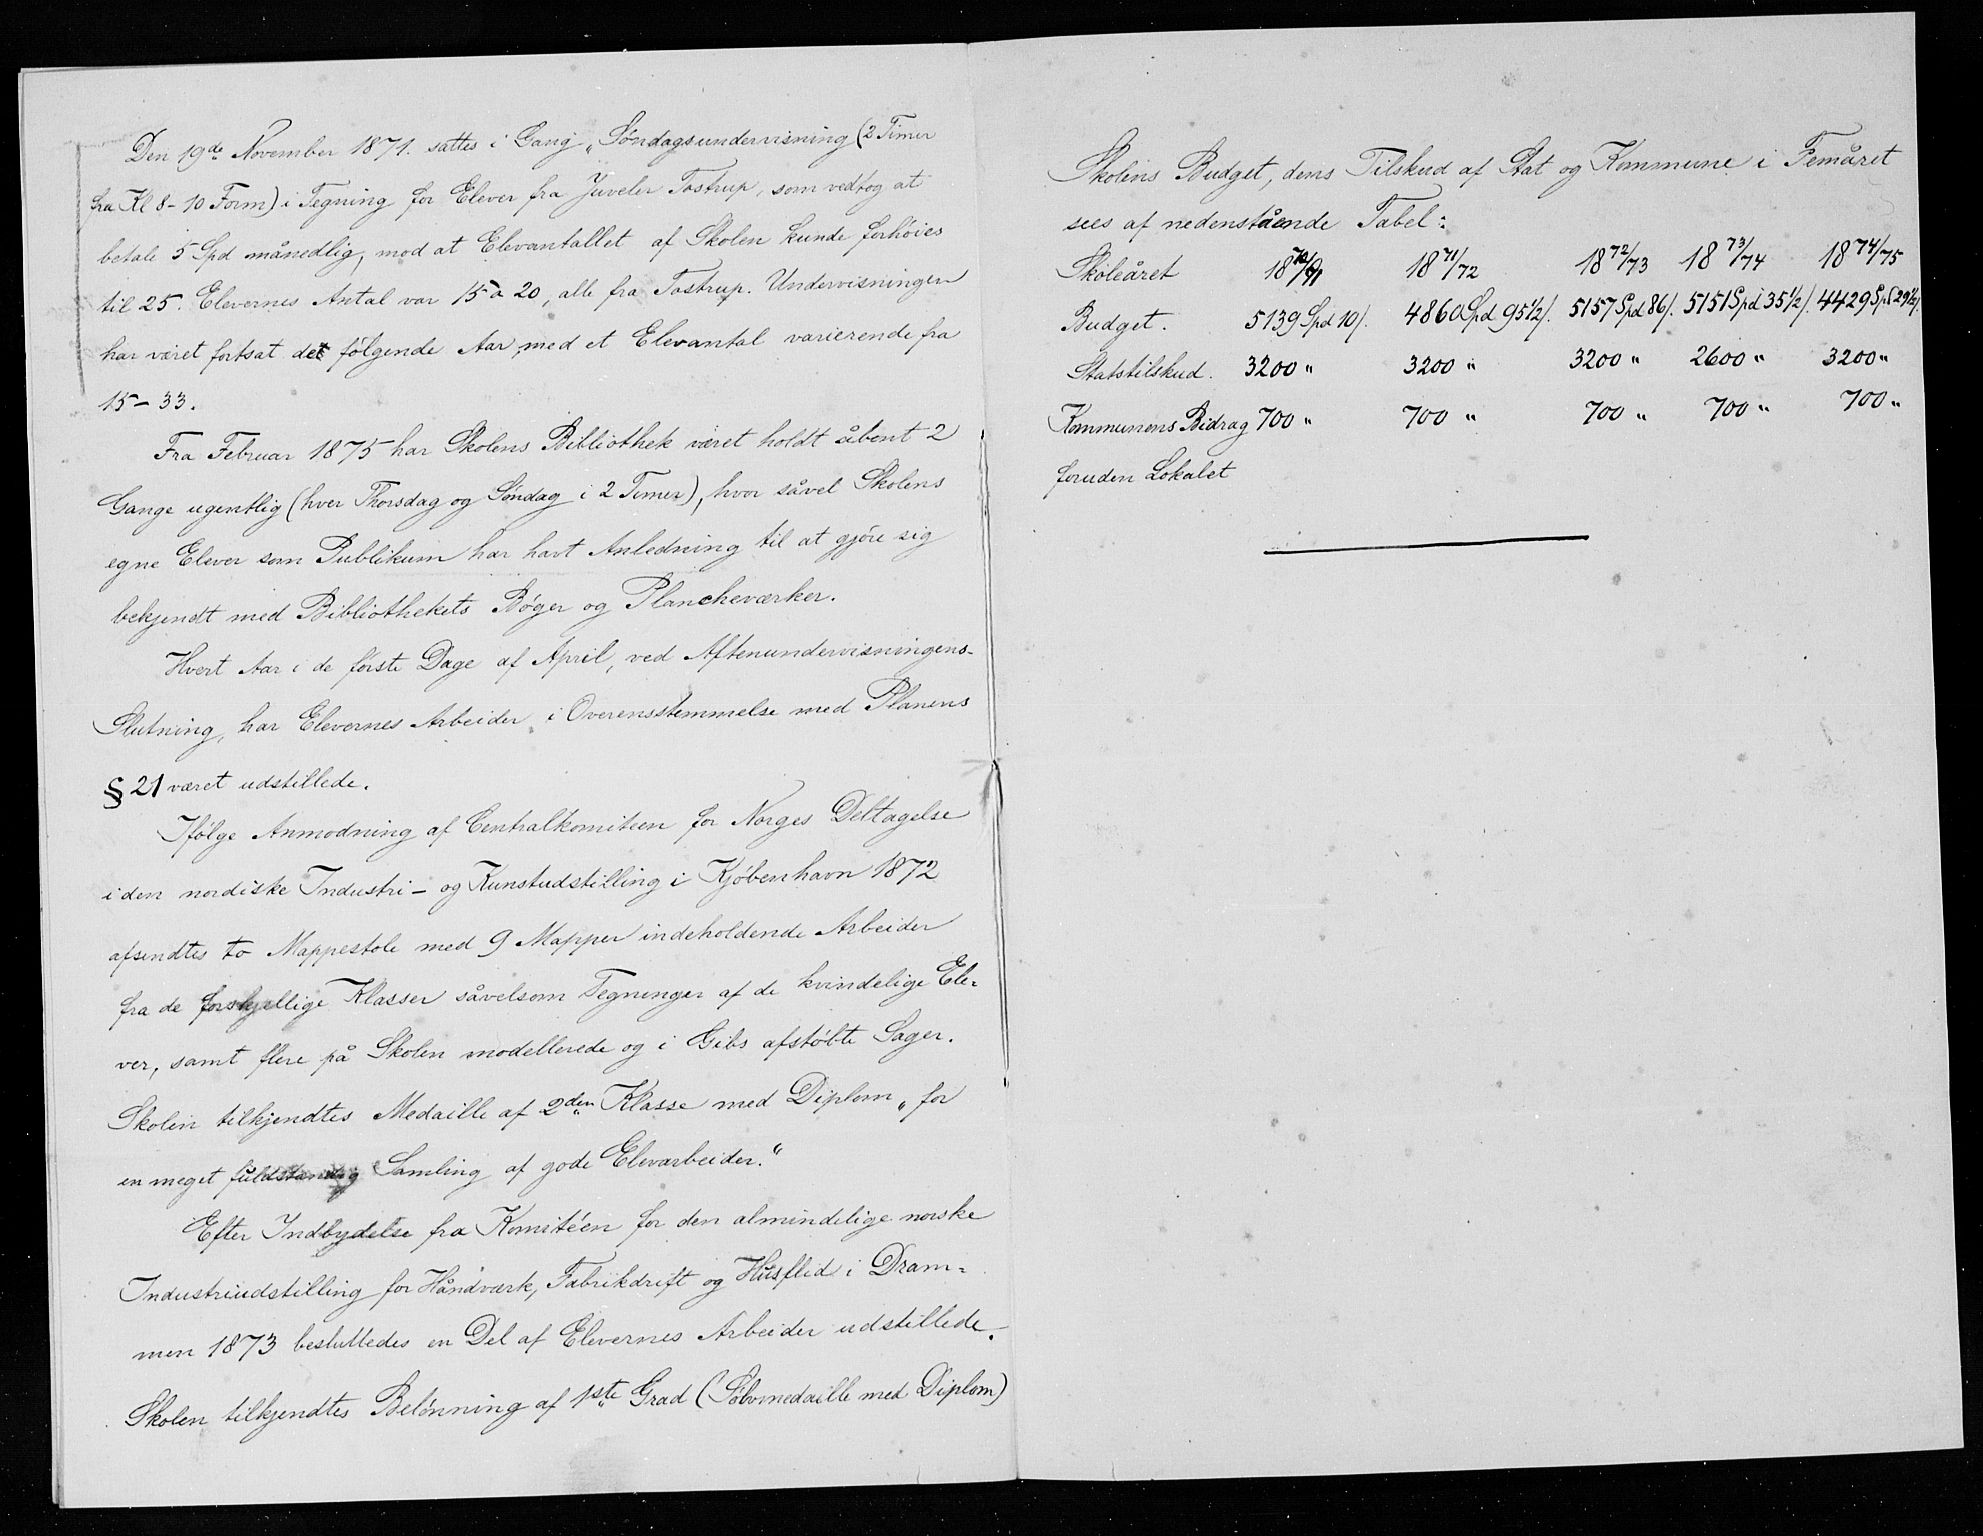 Den 19de November 1871. sattes i Gang „Søndagsundervisning (2 Timer
fra Kl 8-10 Form) i Tegning for Elever fra Juveler Tostrup, som vedtog at
betale 5 Spd månedlig, mod at Elevantallet af Skolen kunde forhøies
til 25. Elevernes Antal var 15 a 20, alle fra Tostrup. Undervisningen
har været fortsat det følgende Aar med et Elevantal varierende fra
15-33.
Fra Februar 1875 har Skolens Bibliothek været holdt åbent 2
Gange ugentlig (hver Thorsdag og Søndag i 2 Timer), hvor såvel Skolens
egne Elever som Publikum har havt Anledning til at gjøre sig
bekjendt med Bibliothekets Bøger og Plancheværker.
Hvert Aar i de første Dage af April, ved Aftenundervisningens
Slutning, har Elevernes Arbeider i Overensstemmelse med Planens
§ 21 været udstillede.
Ifølge Anmodning af Centralkomiteen for Norges Deltagelse
i den nordiske Industri- og Kunstudstilling i Kjøbenhavn 1872
afsendtes to Mappestole med 9 Mapper indeholdende Arbeider
fra de forskjellige Klasser såvelsom Tegninger af de kvindelige Ele-
ver, samt flere på Skolen modellerede og i Gibs afstøbte Sager.
Skolen tilkjendtes Medaille af 2den Klasse med Diplom „for
en meget fuldstændig Samling af gode Elevarbeider."
Efter Indbydelse fra Komitéen for den almindelige norske
Industriudstilling for Håndværk, Fabrikdrift og Husflid i Dram-
men 1873 besluttedes en Del af Elevernes Arbeider udstillede.
Skolen tilkjendtes Belønning af 1ste Grad (Sølvmedaille med Diplom)
Skolens Budget, dens Tilskud af Stat og Kommune i Femåret
sees af nedenstående Tabel:
Skoleåret 1870/71 1871/72 1872/73 1873/74 1874/75
Budget. 5139 Spd 10/. 4860 Spd 95 1/2/. 5157 Spd 86/. 5151 Spd 35 1/2/. 4429 Spd 29 1/2/.
Statstilskud. 3200 " 3200 " 3200 " 2600 " 3200 "
Kommunens Bidrag 700 " 700 " 700 " 700 " 700 "
foruden Lokalet